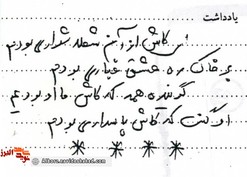 یادداشت
ای کاش از آتش شعله شراری بودم
بر خاک ره عشق غباری بودم
گویند همه که کاش ما او بودیم
او گفت که کاش پاسداری بودم
* * * *
Alborz.navideshahed.com